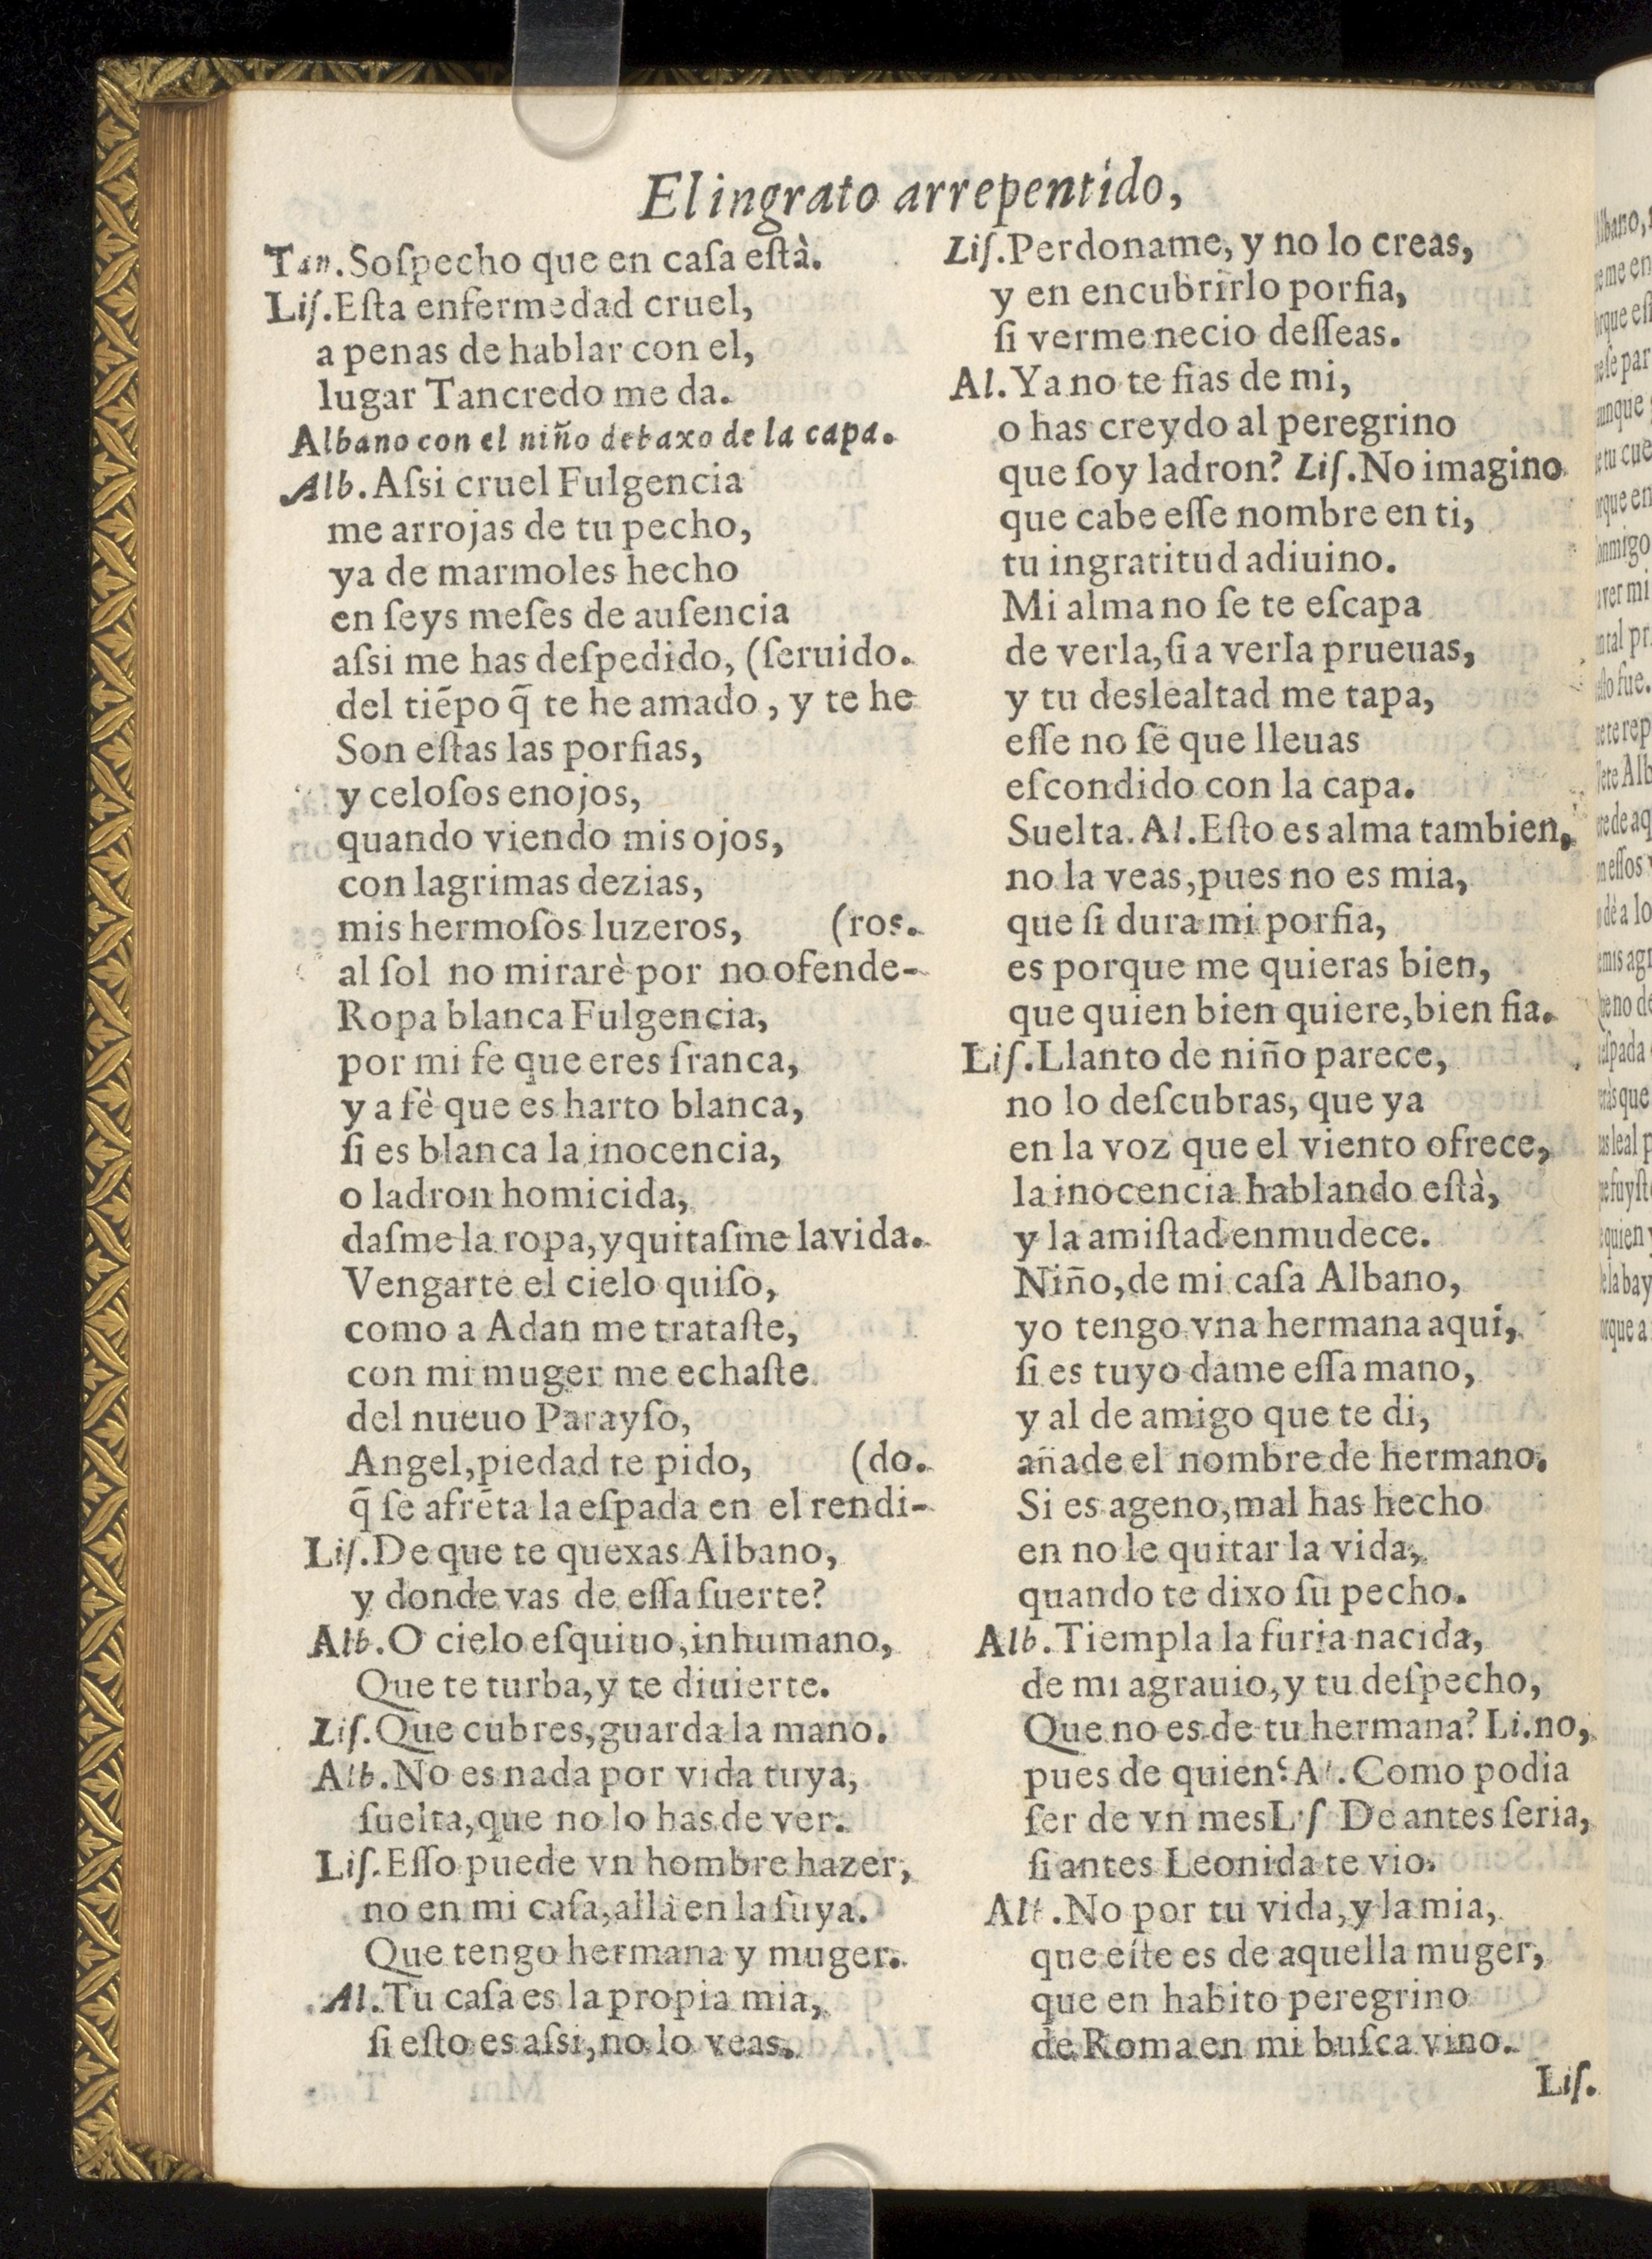 El ingrato arrepentido,
Tan. Soſpecho que en caſa eſtà.
Liſ. Eſta enfermedad cruel,
a penas de hablar con el,
lugar Tancredo me da.
Albano con el niño debaxo de la capa.
Alb. Aſsi cruel Fulgencia
me arrojas de tu pecho,
ya de marmoles hecho
en ſeys meſes de auſencia
aſsi me has deſpedido, (ſeruido.
del tiẽpo q̃ te he amado, y te he
Son eſtas las porfias,
y celoſos enojos,
quando viendo mis ojos,
con lagrimas dezias,
mis hermoſos luzeros, (ros.
al ſol no mirarè por no ofende-
Ropa blanca Fulgencia,
por mi fe que eres franca,
y a fè que es harto blanca,
ſi es blanca la inocencia,
o ladron homicida,
daſme la ropa, y quitaſme la vida.
Vengarte el cielo quiſo,
como a Adan me trataſte,
con mi muger me echaſte
del nueuo Parayſo,
Angel, piedad te pido, (do.
q̃ ſe afrẽta la eſpada en el rendi-
Liſ. De que te quexas Albano,
y donde vas de eſſa ſuerte?
Alb. O cielo eſquiuo, inhumano,
Que te turba, y te diuierte.
Liſ. Que cubres, guarda la mano.
Alb. No es nada por vida tuya,
ſuelta, que no lo has de ver.
Liſ. Eſſo puede vn hombre hazer,
no en mi caſa, allà en la ſuya.
Que tengo hermana y muger.
Al. Tu caſa es la propia mia,
ſi eſto es aſsi, no lo veas.
Liſ. Perdoname, y no lo creas,
y en encubrirlo porfia,
ſi verme necio deſſeas.
Al. Ya no te fias de mi,
o has creydo al peregrino
que ſoy ladron? Liſ. No imagino
que cabe eſſe nombre en ti,
tu ingratitud adiuino.
Mi alma no ſe te eſcapa
de verla, ſi a verla prueuas,
y tu deslealtad me tapa,
eſſe no ſè que lleuas
eſcondido con la capa.
Suelta. Al. Eſto es alma tambien,
no la veas, pues no es mia,
que ſi dura mi porfia,
es porque me quieras bien,
que quien bien quiere, bien fia.
Liſ. Llanto de niño parece,
no lo deſcubras, que ya
en la voz que el viento ofrece,
la inocencia hablando eſtà,
y la amiſtad enmudece.
Niño, de mi caſa Albano,
yo tengo vna hermana aqui,
ſi es tuyo dame eſſa mano,
y al de amigo que te di,
añade el nombre de hermano.
Si es ageno, mal has hecho
en no le quitar la vida,
quando te dixo ſu pecho.
Alb. Tiempla la furia nacida,
de mi agrauio, y tu deſpecho,
Que no es de tu hermana? Li. no,
pues de quien? Al. Como podia
ſer de vn mes Liſ De antes ſeria,
ſi antes Leonida te vio.
Alb. No por tu vida, y la mia,
que eſte es de aquella muger,
que en habito peregrino
de Roma en mi buſca vino.
Liſ.